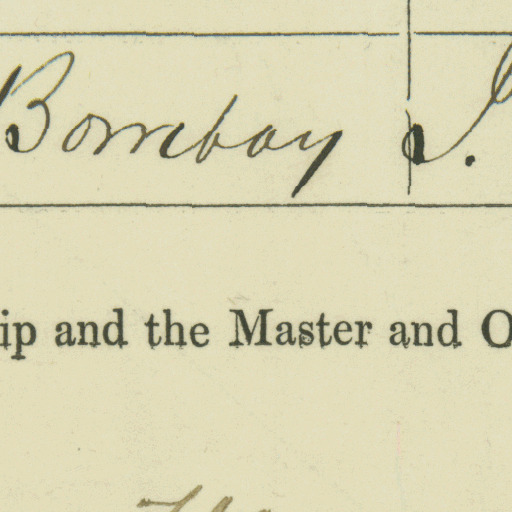 Bombay J.
ip and the Master and O